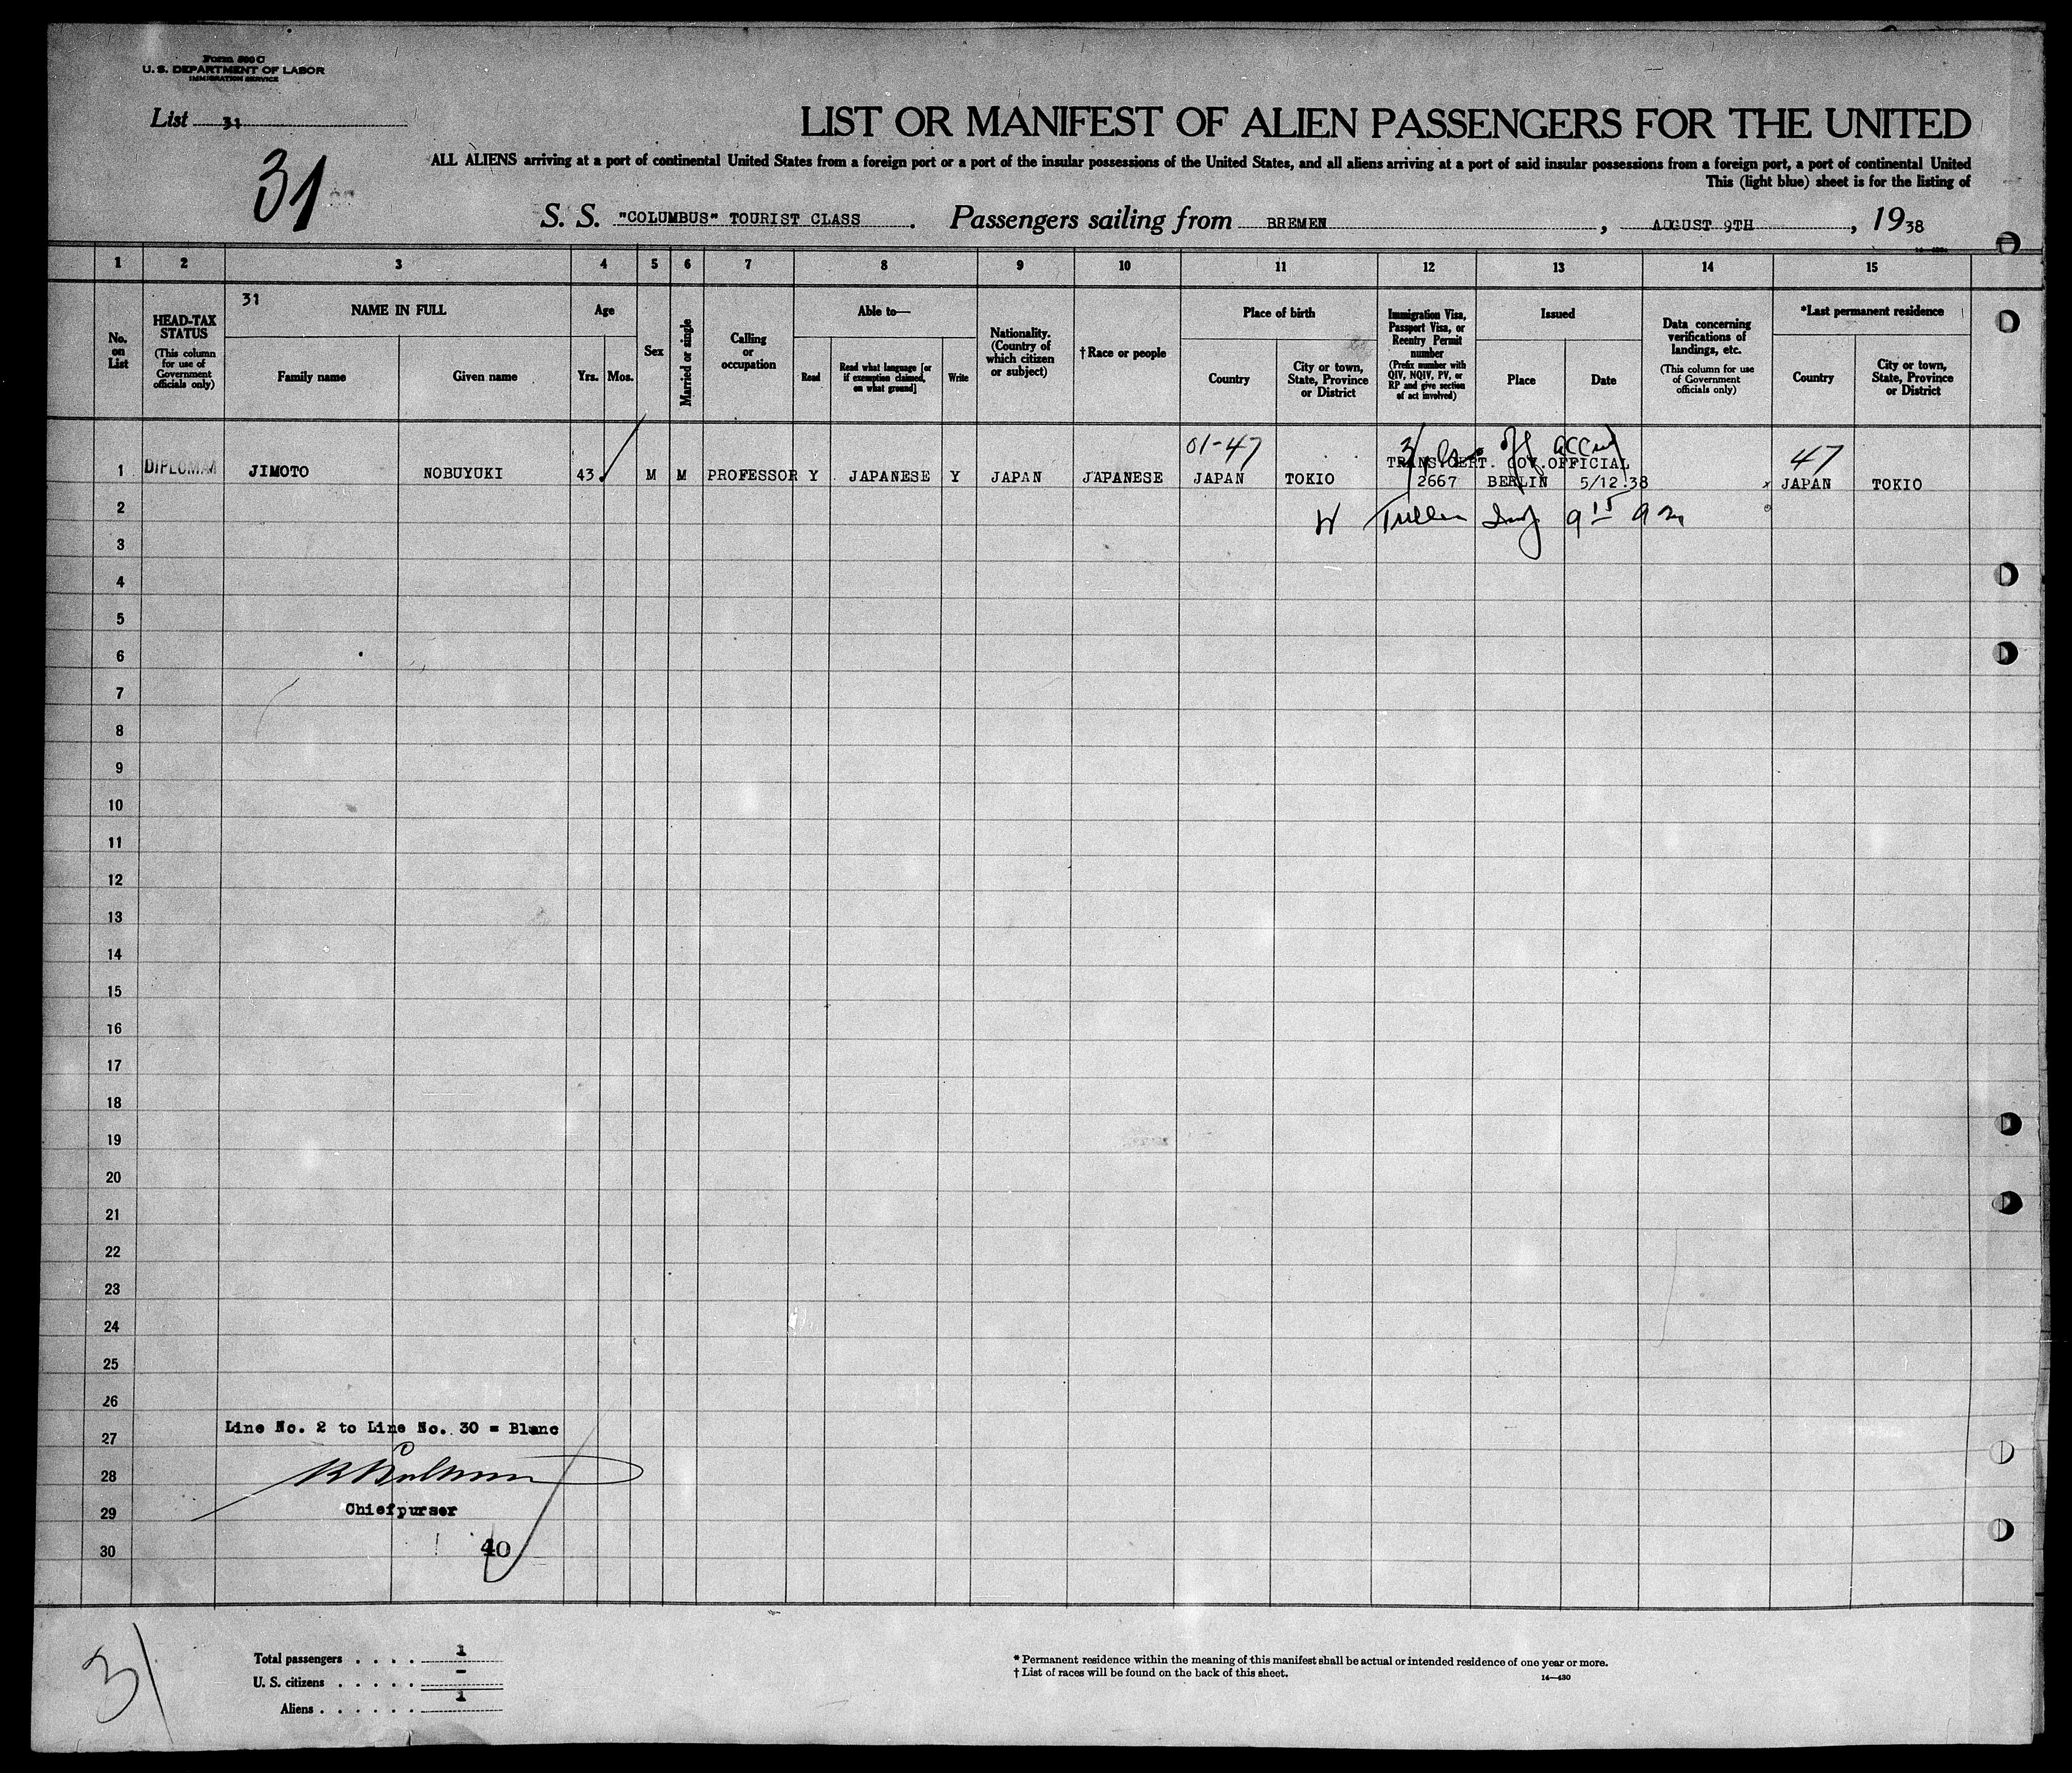 Form 500 C
U. S. DEPARTMENT OF LABOR
IMMIGRATION SERVICE
List 31
31
LIST OR MANIFEST OF ALIEN PASSENGERS FOR THE UNITED
ALL ALIENS arriving at a port of continental United States from a foreign port or a port of the insular possessions of the United States, and all aliens arriving at a port of said insular possessions from a foreign port, a port of continental United
This (light blue) sheet is for the listing of
S. S. "COLUMBUS" TOURIST CLASS . Passengers sailing from BREMEN , AUGUST 9TH , 1938
1 2 3 4 5 6 7 8 9 10 11 12 13 14 15
No. on List
HEAD-TAX STATUS
(This column for use of Government officials only)
31
NAME IN FULL
Family name
Given name
Age
Yrs. Mos.
Sex
Married or single
Calling or occupation
Able to—
Read
Read what language [or if exemption claimed, on what ground]
Write
Nationality. (Country of which citizen or subject)
†Race or people
Place of birth
Country
City or town, State, Province or District
Immigration Visa, Passport Visa, or Reentry Permit number
(Prefix number with QIV, NQIV, PV, or RP and give section of act involved)
Issued
Place
Date
Data concerning verifications of landings, etc.
(This column for use of Government officials only)
*Last permanent residence
Country
City or town, State, Province or District
01-47
47
TRANS.CERT. GOV.OFFICIAL
1 DIPLOMAT JIMOTO NOBUYUKI 43 M M PROFESSOR Y JAPANESE Y JAPAN JAPANESE JAPAN TOKIO 2667 BERLIN 5/12.38 x JAPAN TOKIO
2
3
4
5
6
7
8
9
10
11
12
13
14
15
16
17
18
19
20
21
22
23
24
25
26
Line No. 2 to Line No. 30 = Blanc
27
28
29 Chiefpurser
30 40
31
Total passengers . . . . 1
U. S. citizens . . . . . -
Aliens . . . . . . 1
* Permanent residence within the meaning of this manifest shall be actual or intended residence of one year or more.
† List of races will be found on the back of this sheet.
14—430